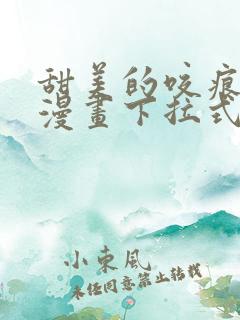 甜美的咬痕
漫畫下拉式
小東風
未经同意禁止转载